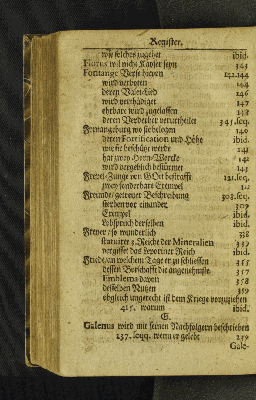 Register.
wie solches zugehet ibid.
Florus wil nicht Kayser seyn 343
Fontange Verse hievon 132.144
wird verboten 144
deren Valet-Lied 146
wird verthädiget 147
ehrbare wird zugelassen 148
deren Verbeuter verurtheilet 345.seq.
wo sie belegen 140
deren Fortification und Höhe ibid.
wie sie beschützt werde 141
hat zwey Horn-Wercke 142
wird vergeblich bestürmet 143
Frevel-Zunge von GOtt bestrafft 121.seq.
zwey sonderbare Exempel
Freunde/ getreuer Beschreibung 308.seq.
sterben vor einander 309
Exempel ibid.
Lobspruch derselben ibid.
Freyer/ so wunderlich 338
statuiret 3. Reiche der Mineralien 339
vergisset das Leporiner Reich ibid.
Friede/ an welchem Tage er zu schliessen 355
dessen Botschafft die angenehmste 357
Emblemata davon 358
desselben Nutzen 359
obgleich ungerecht ist dem Kriege vorzuziehen
415. warum ibid.
G.
Galenus wird mit seinen Nachfolgern beschrieben
137. seqq. wenn er gelebt 259
Gale-